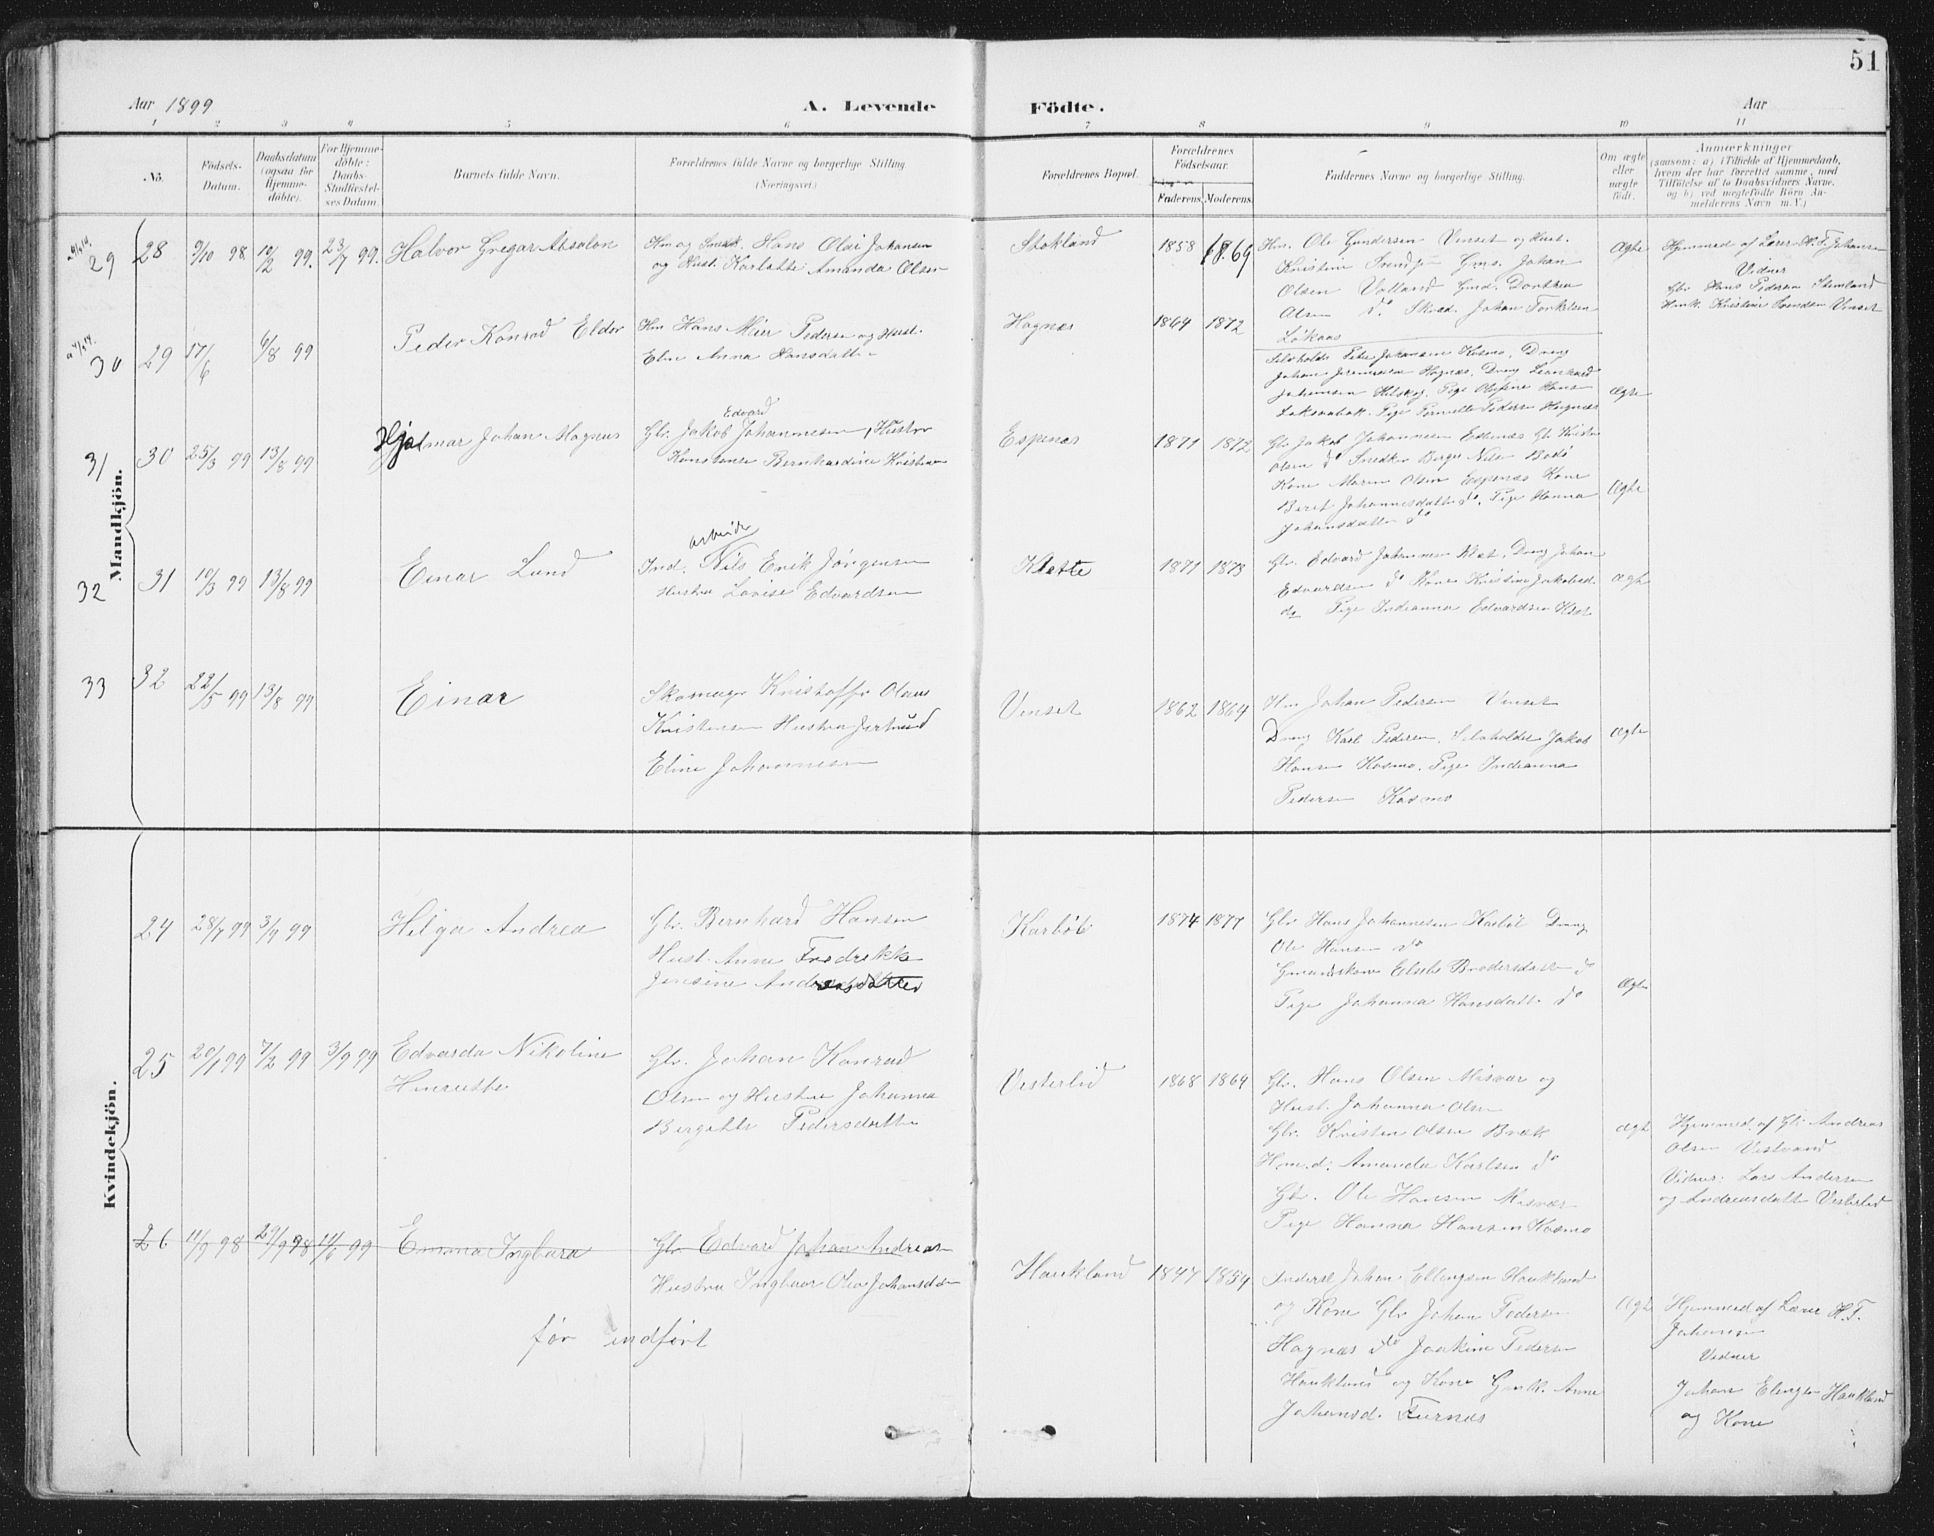 51
Aar 1899
A. Levende
Födte.
Aar
1 2 3 4 5 6 7 8 9 10 11
No.
Födsels-
Datum.
Daabsdatum
(ogsaa for
Hjemme-
döbte).
For Hjemme-
döbte:
Daabs-
Stadfæstel-
ses Datum.
Barnets fulde Navn.
Forældrenes fulde Navne og borgerlige Stilling
(Næringsvei.)
Forældrenes Bopæl.
Forældrenes
Födselsaar.
Faderens Moderens
Faddernes Navne og borgerlige Stilling.
Om ægte
eller
uægte
födt.
Anmærkninger
(saasom: a) i Tilfælde af Hjemmedaab,
hvem der har forrettet samme, med
Tilföielse af to Daabsvidners Navne,
og b) ved uegtefödte Börn An-
melderens Navn m. V.)
Mandkjön.
29 28 9/10 98 12/2 99. 23/7 99. Halvor Gregar Absalon
Hm og Hans Olai Johansen
og Hust. Karlotte Amanda Olsen
Stokland 1858 1869
Hm. Ole Gundersen Vinset og Hust.
Kristine Johan
Olsen Valland Gmd.
Olsen do Johan Torkelsen
Lökaas
Ægte
Hjemmed af Lærer H. F. Johansen
Vidner
Gbr Hans Pedersen
Kristine Svendsen Vinset
30 29 17/6 6/8 99 Peder Konrad Elder
Hm Hans Meier Pedersen og Hust.
Eline Anna Hansdatter
Hognæs 1864 1872
Selvholder Peter Johansen Kosmo, Dreng
Johan Jeremiasen Hognæs, Dreng Leonhard
Johansen Pige Hans
Pige Pernille Pedersen Hognæs
Ægte
31 30 25/3 99 13/8 99 Hjalmar Johan Magnus
Edvard
Gbr. Jakob Johannesen, Hustru
Konstanse Bernhardine Kristine
Espenæs 1871 1872
Gbr Jakob Johannesen Espenæs Gb Kristen
Olsen do Snedker Birger Nils Bodö
Kone Maren Olsen Espenæs Kone
Beret Johannesdatter do. Pige Hanna
Johansdatter do
Ægte
32 31 10/3 99 13/8 99 Einar Lund
arbeider
Ind. Nils Erik Jörgensen
Hustru Lovise Edvardsen
Klette 1871 1873
Gbr. Edvard Johannesen Klet, Dreng Johan
Edvardsen do Kone Kristine Jakobsd.
do Pige Indianna Edvardsen Klet
Ægte
33 32 22/5 99 13/8 99 Einar
Skomager Kristoffer Olaus
Kristensen Hustru Jertrud
Eline Johannesen
Vinset 1862 1864
Hm Johan Pedersen Vinset
Dreng Karl Pedersen, Selvholder Jakob
Hansen Kosmo, Pige Indianna
Pedersen Kosmo
Ægte
Kvindekjön.
24 28/7 99 3/9 99 Helga Andrea
Gbr. Bernhard Hansen
Hust. Anne Fredrikke
Jensine Andreasdatter
Karböl 1874 1877
Gbr Hans Johannesen Karböl Dreng
Ole Hansen do
Gmandskone Brodersdatter do
Pige Johanna Hansdatter do
Ægte
25 20/1 99 7/2 99 3/9 99 Edvarda Nikoline
Henriette
Gbr. Johan Konrad
Olsen og Hustru Johanna
Bergitte Pedersdatter
Vesterlid 1868 1864
Gbr. Hans Olsen Misvær og
Hust. Johanna Olsen
Gbr. Kristen Olsen Bræk
Hm.d. Amanda Karlsen do
Gbr. Ole Hansen Misvær
Pige Hanna Hansen Kosmo
Ægte
Hjemmed af Gbr Andreas
Olsen Vestvand
Vidner: Lars Andersen
og Andreasdatter Vesterlid
26 11/9 98 29/9 98 11/6 99 Emma Ingbara
Gbr. Edvard Johan Andreas
Hustru Ingbaar Olea Johansdatter
før indført
Haukland 1847 1854
Inderst Johan Ellingsen Haukland
og Kone Gbr Johan Pedersen
Hognæs do Joakim Pedersen
Haukland og Kone Gmk. Anne
Johansd. Furnæs
Ægte
Hjemmed af Lærer H. F.
Johansen
Vidner
Johan Elingsen Haukland
og Kone